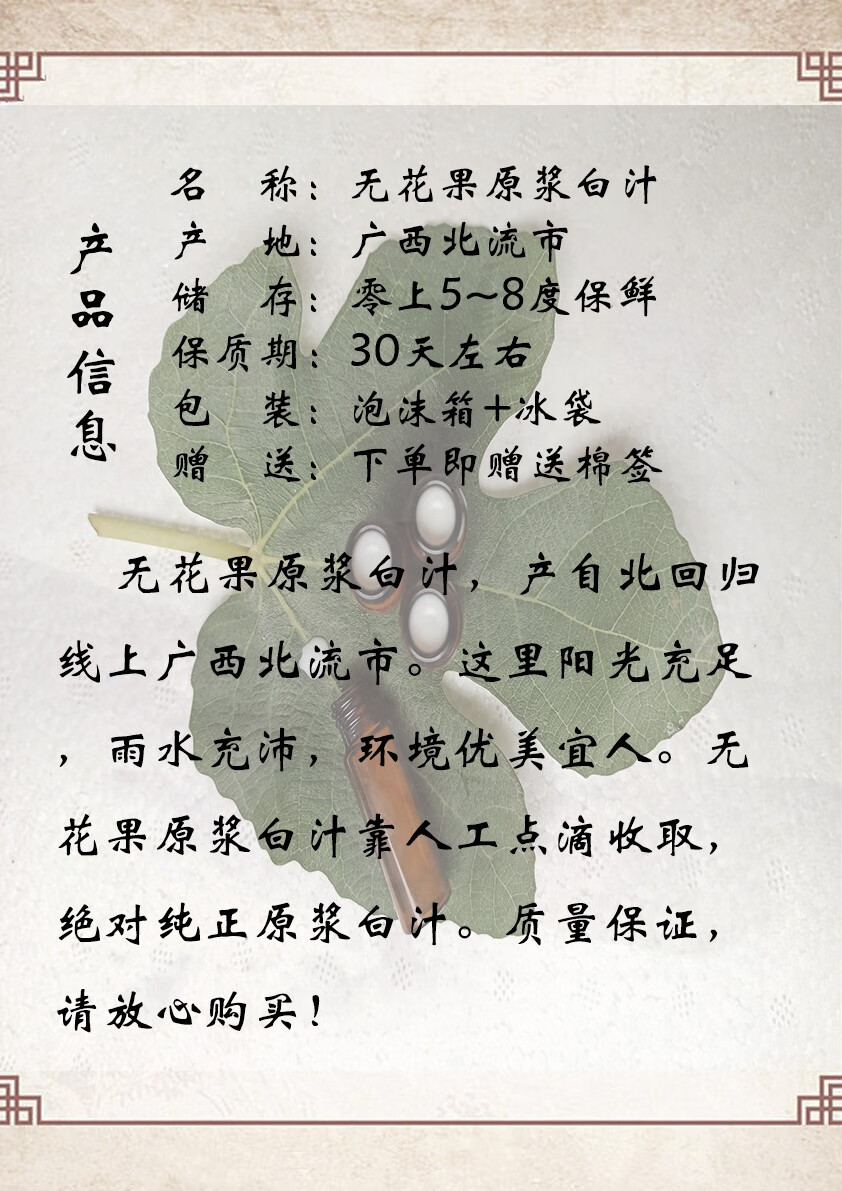 产品信息
名 称：无花果原浆白汁
产 地：广西北流市
储 存：零上5~8度保鲜
保质期：30天左右
包 装：泡沫箱+冰袋
赠 送：下单即赠送棉签
无花果原浆白汁，产自北回归
线上广西北流市。这里阳光充足
，雨水充沛，环境优美宜人。无
花果原浆白汁靠人工点滴收取，
绝对纯正原浆白汁。质量保证，
请放心购买！